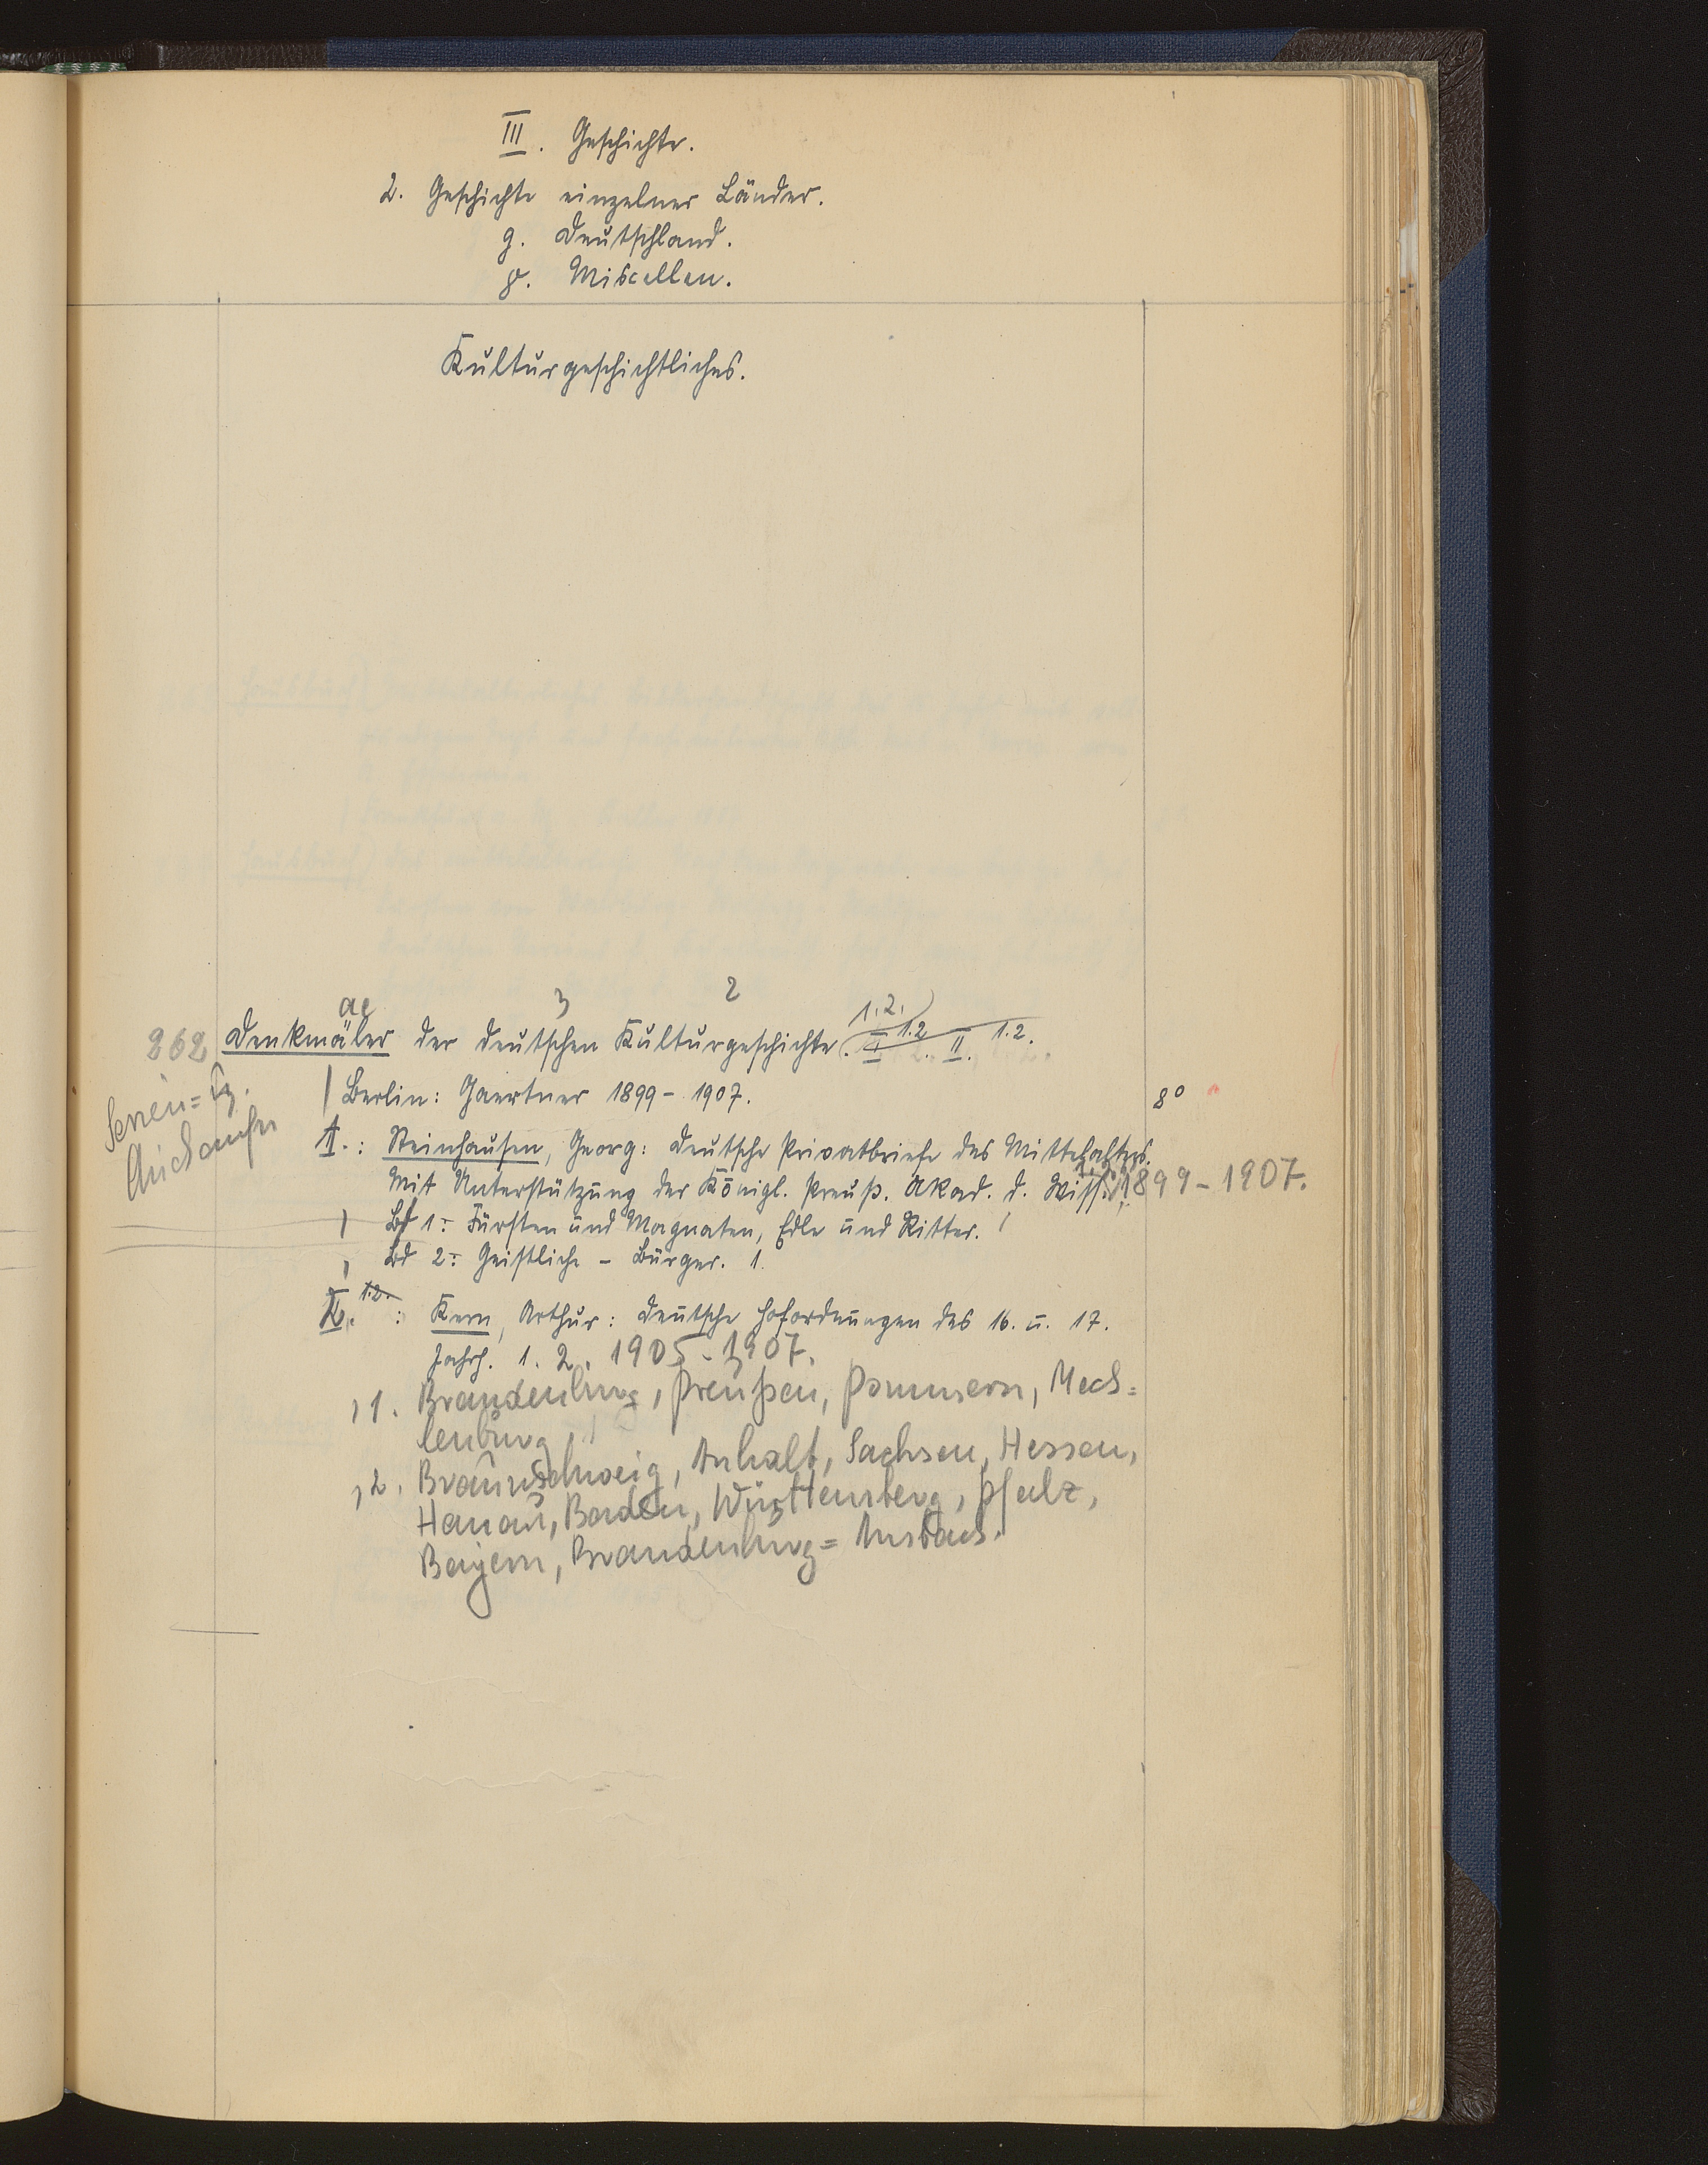 III. Geschichte.
2. Geschichte einzelner Länder.
g. Deutschland.
γ. Miscellen.
Kulturgeschichtliches.
ae 3 2 1.2.
262 Denkmäler der deutschen Kulturgeschichte. I 1.2. II. 1.2.
Serien=
Berlin: Gaertner 1899-1907. 8°
I.: Steinhausen, Georg: Deutsche Privatbriefe des Mittelalters.
Mit Unterstützung der Königl. Preuß. Akad. d. Wiss. 1.2. 1899-1907.
Bd 1: Fürsten und Magnaten, Edle und Ritter.
Bd 2: Geistliche - Bürger. 1.
II. 1.2. : Kern, Arthur: Deutsche Hofordnungen des 16. u. 17.
Jahrh. 1. 2. 1905-1907.
1. Brandenburg, Preußen, Pommern, Meck=
lenburg
2. Braunschweig, Anhalt, Sachsen, Hessen,
Hanau, Baden, Württemberg, Pfalz,
Bayern, Brandenburg=Ansbach.